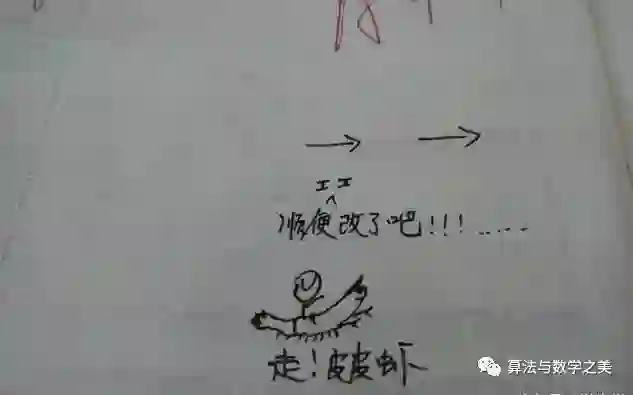 → →
工工
顺便改了吧!!!.....
走!皮皮虾
算法与数学之美